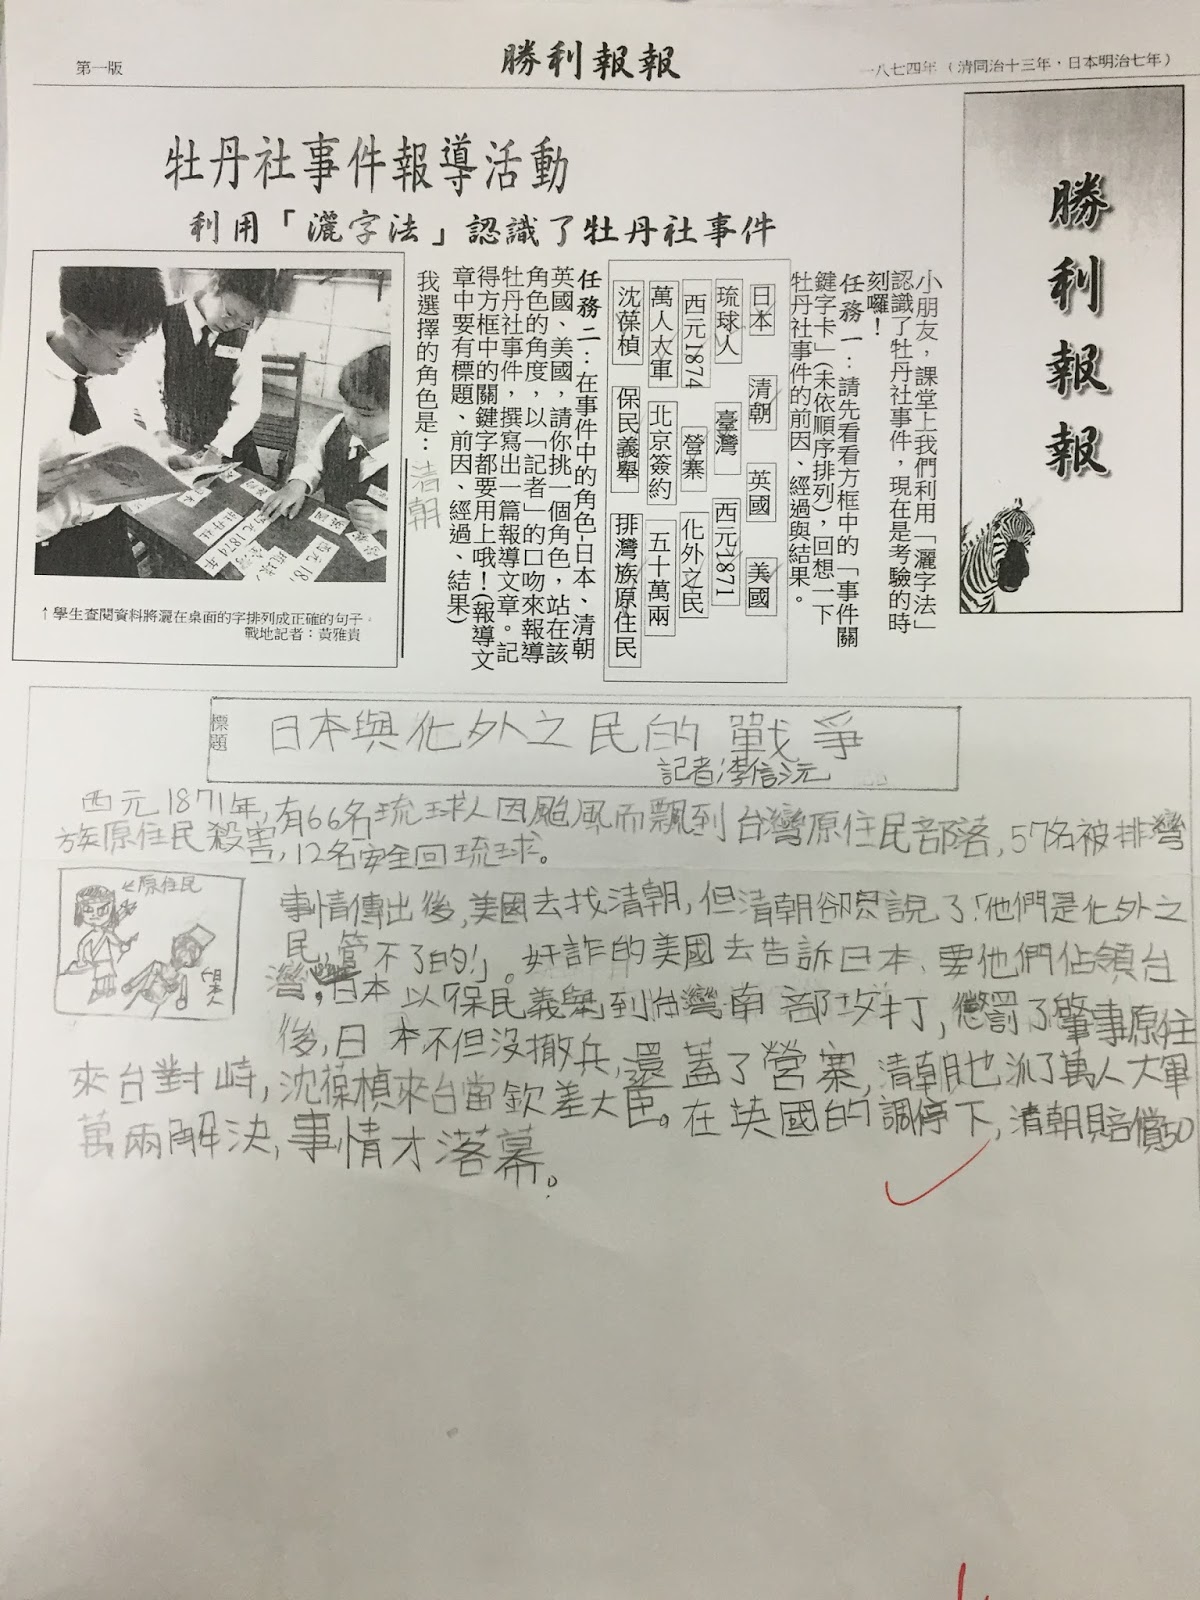 第一版
勝利報報
一八七四年（清同治十三年，日本明治七年）
牡丹社事件報導活動
利用「灑字法」認識了牡丹社事件
勝利報報
小朋友，課堂上我們利用「灑字法」
認識了牡丹社事件，現在是考驗的時
刻囉！
任務一：請先看看方框中的「事件關
鍵字卡」(未依順序排列)，回想一下
牡丹社事件的前因、經過與結果。
日本 清朝 英國 美國
琉球人 臺灣 西元1871
西元1874 營寨 化外之民
萬人大軍 北京簽約 五十萬兩
沈葆楨 保民義舉 排灣族原住民
任務二：在事件中的角色-日本、清朝
英國、美國，請你挑一個角色，站在該
角色的角度，以「記者」的口吻來報導
牡丹社事件，撰寫出一篇報導文章。記
得方框中的關鍵字都要用上哦！(報導文
章中要有標題、前因、經過、結果)
我選擇的角色是：清朝
↑學生查閱資料將灑在桌面的字排列成正確的句子。
戰地記者：黃雅貴
標題
日本與化外之民的戰爭
記者李信沅
西元1871年，有66名琉球人因颱風而飄到台灣原住民部落，57名被排灣
族原住民殺害，12名安全回琉球。
原住民
事情傳出後，美國去找清朝，但清朝卻只說了「他們是化外之
民，管不了的！」。奸詐的美國去告訴日本，要他們佔領台
灣，日本以「保民義舉到台灣南部攻打，懲罰了肇事原住
後，日本不但沒撤兵，還蓋了營寨，清朝也派了萬人大軍
來台對峙，沈葆楨來台當欽差大臣。在英國的調停下，清朝賠償50
萬兩解決，事情才落幕。